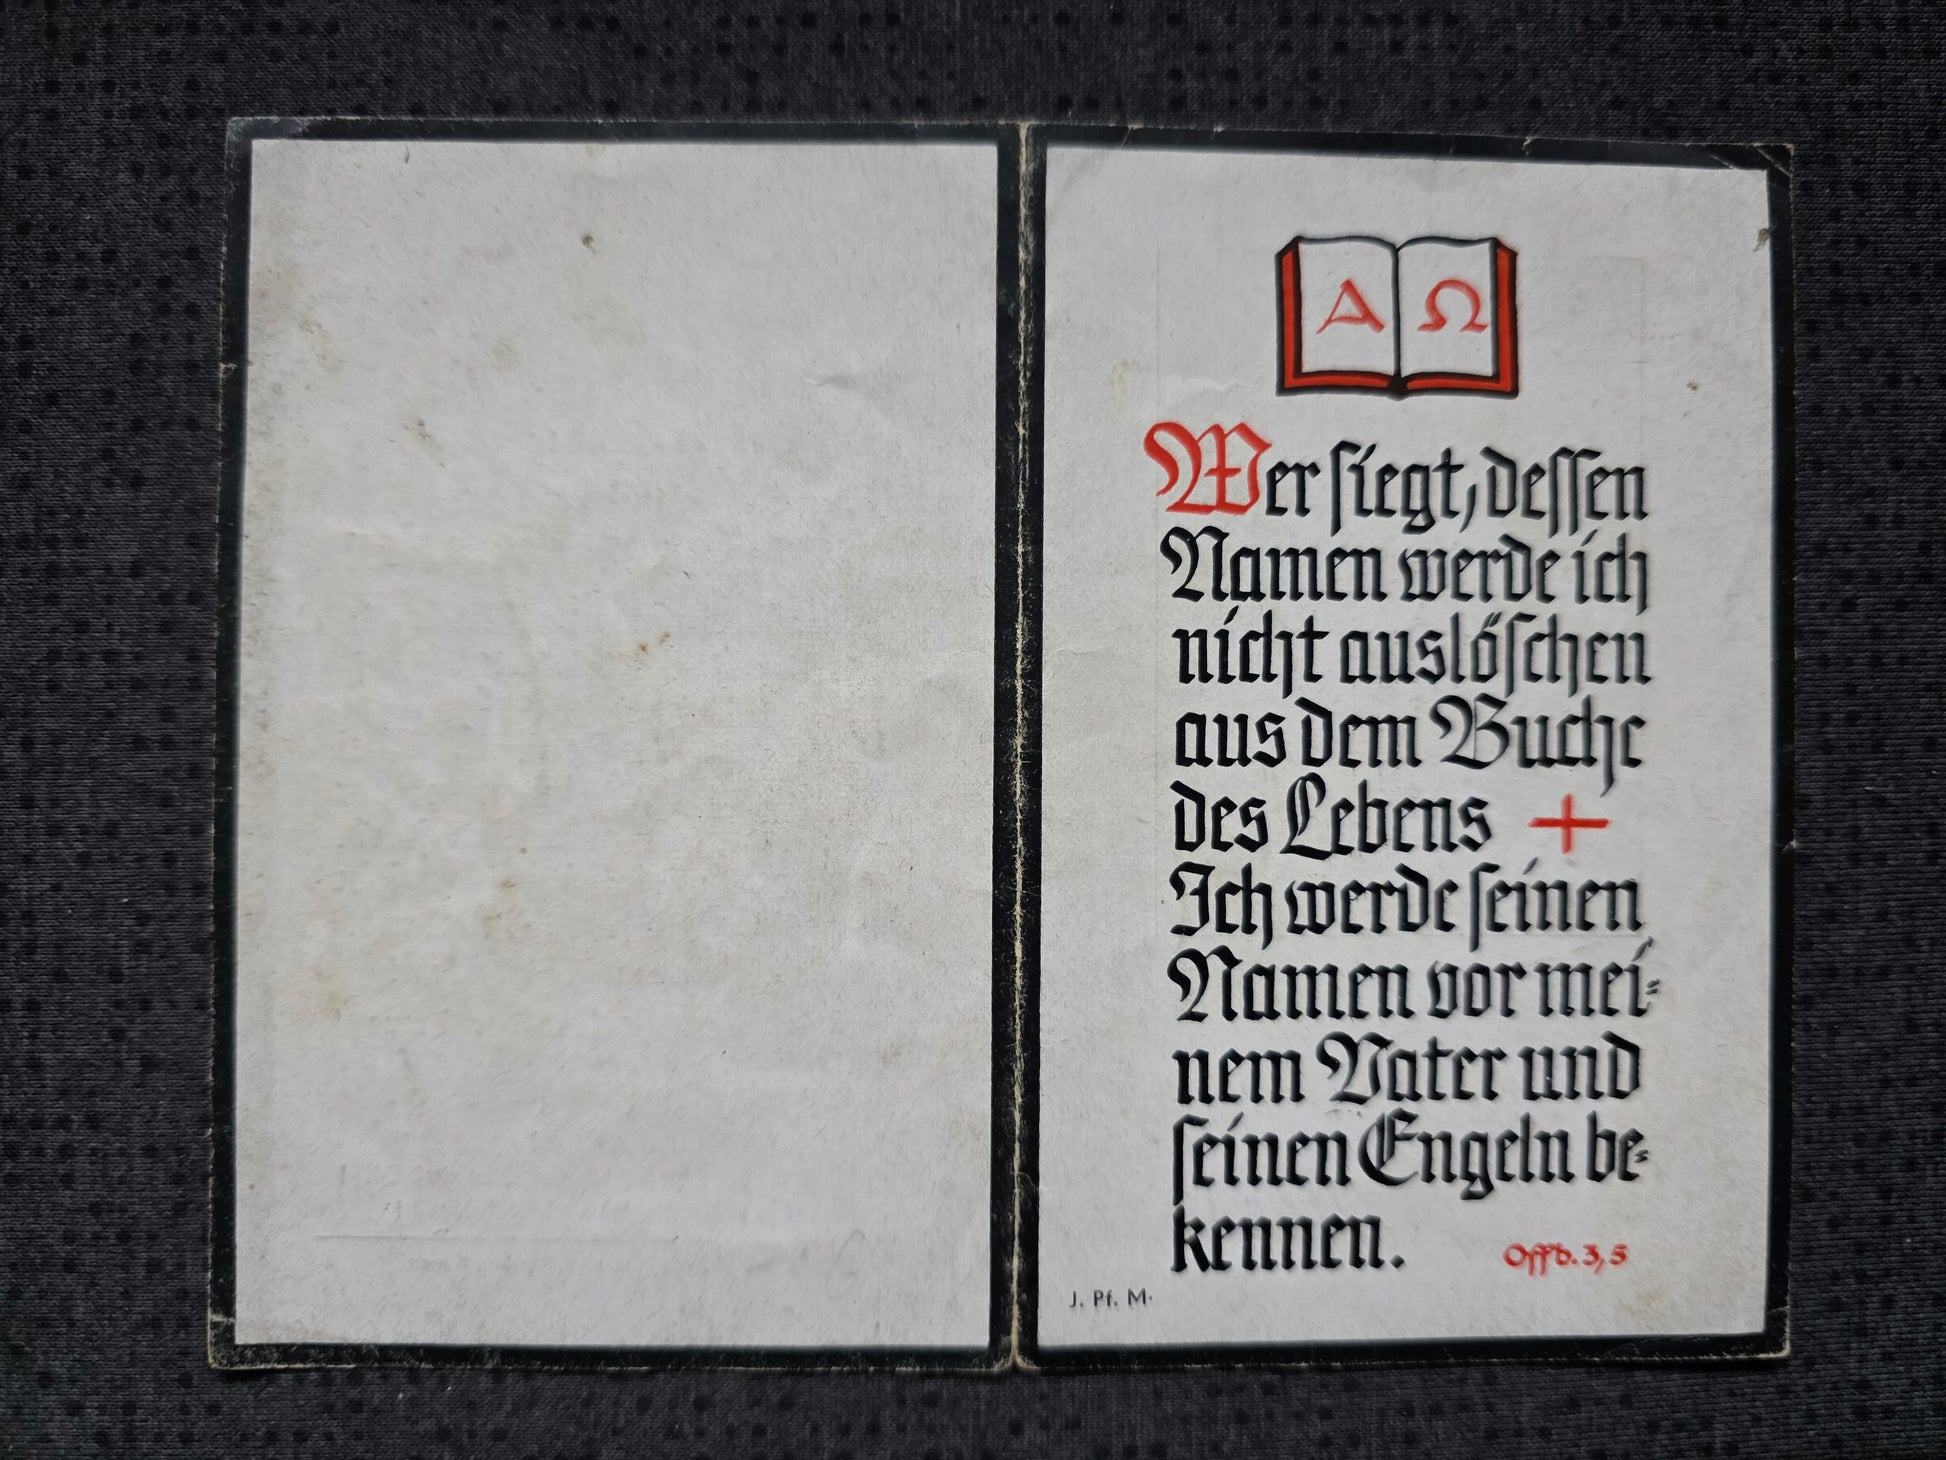 Α Ω
Wer siegt, dessen
Namen werde ich
nicht auslöschen
aus dem Buche
des Lebens +
Ich werde seinen
Namen vor mei⸗
nem Vater und
seinen Engeln be⸗
kennen.
Offb. 3, 5
J. Pf. M.